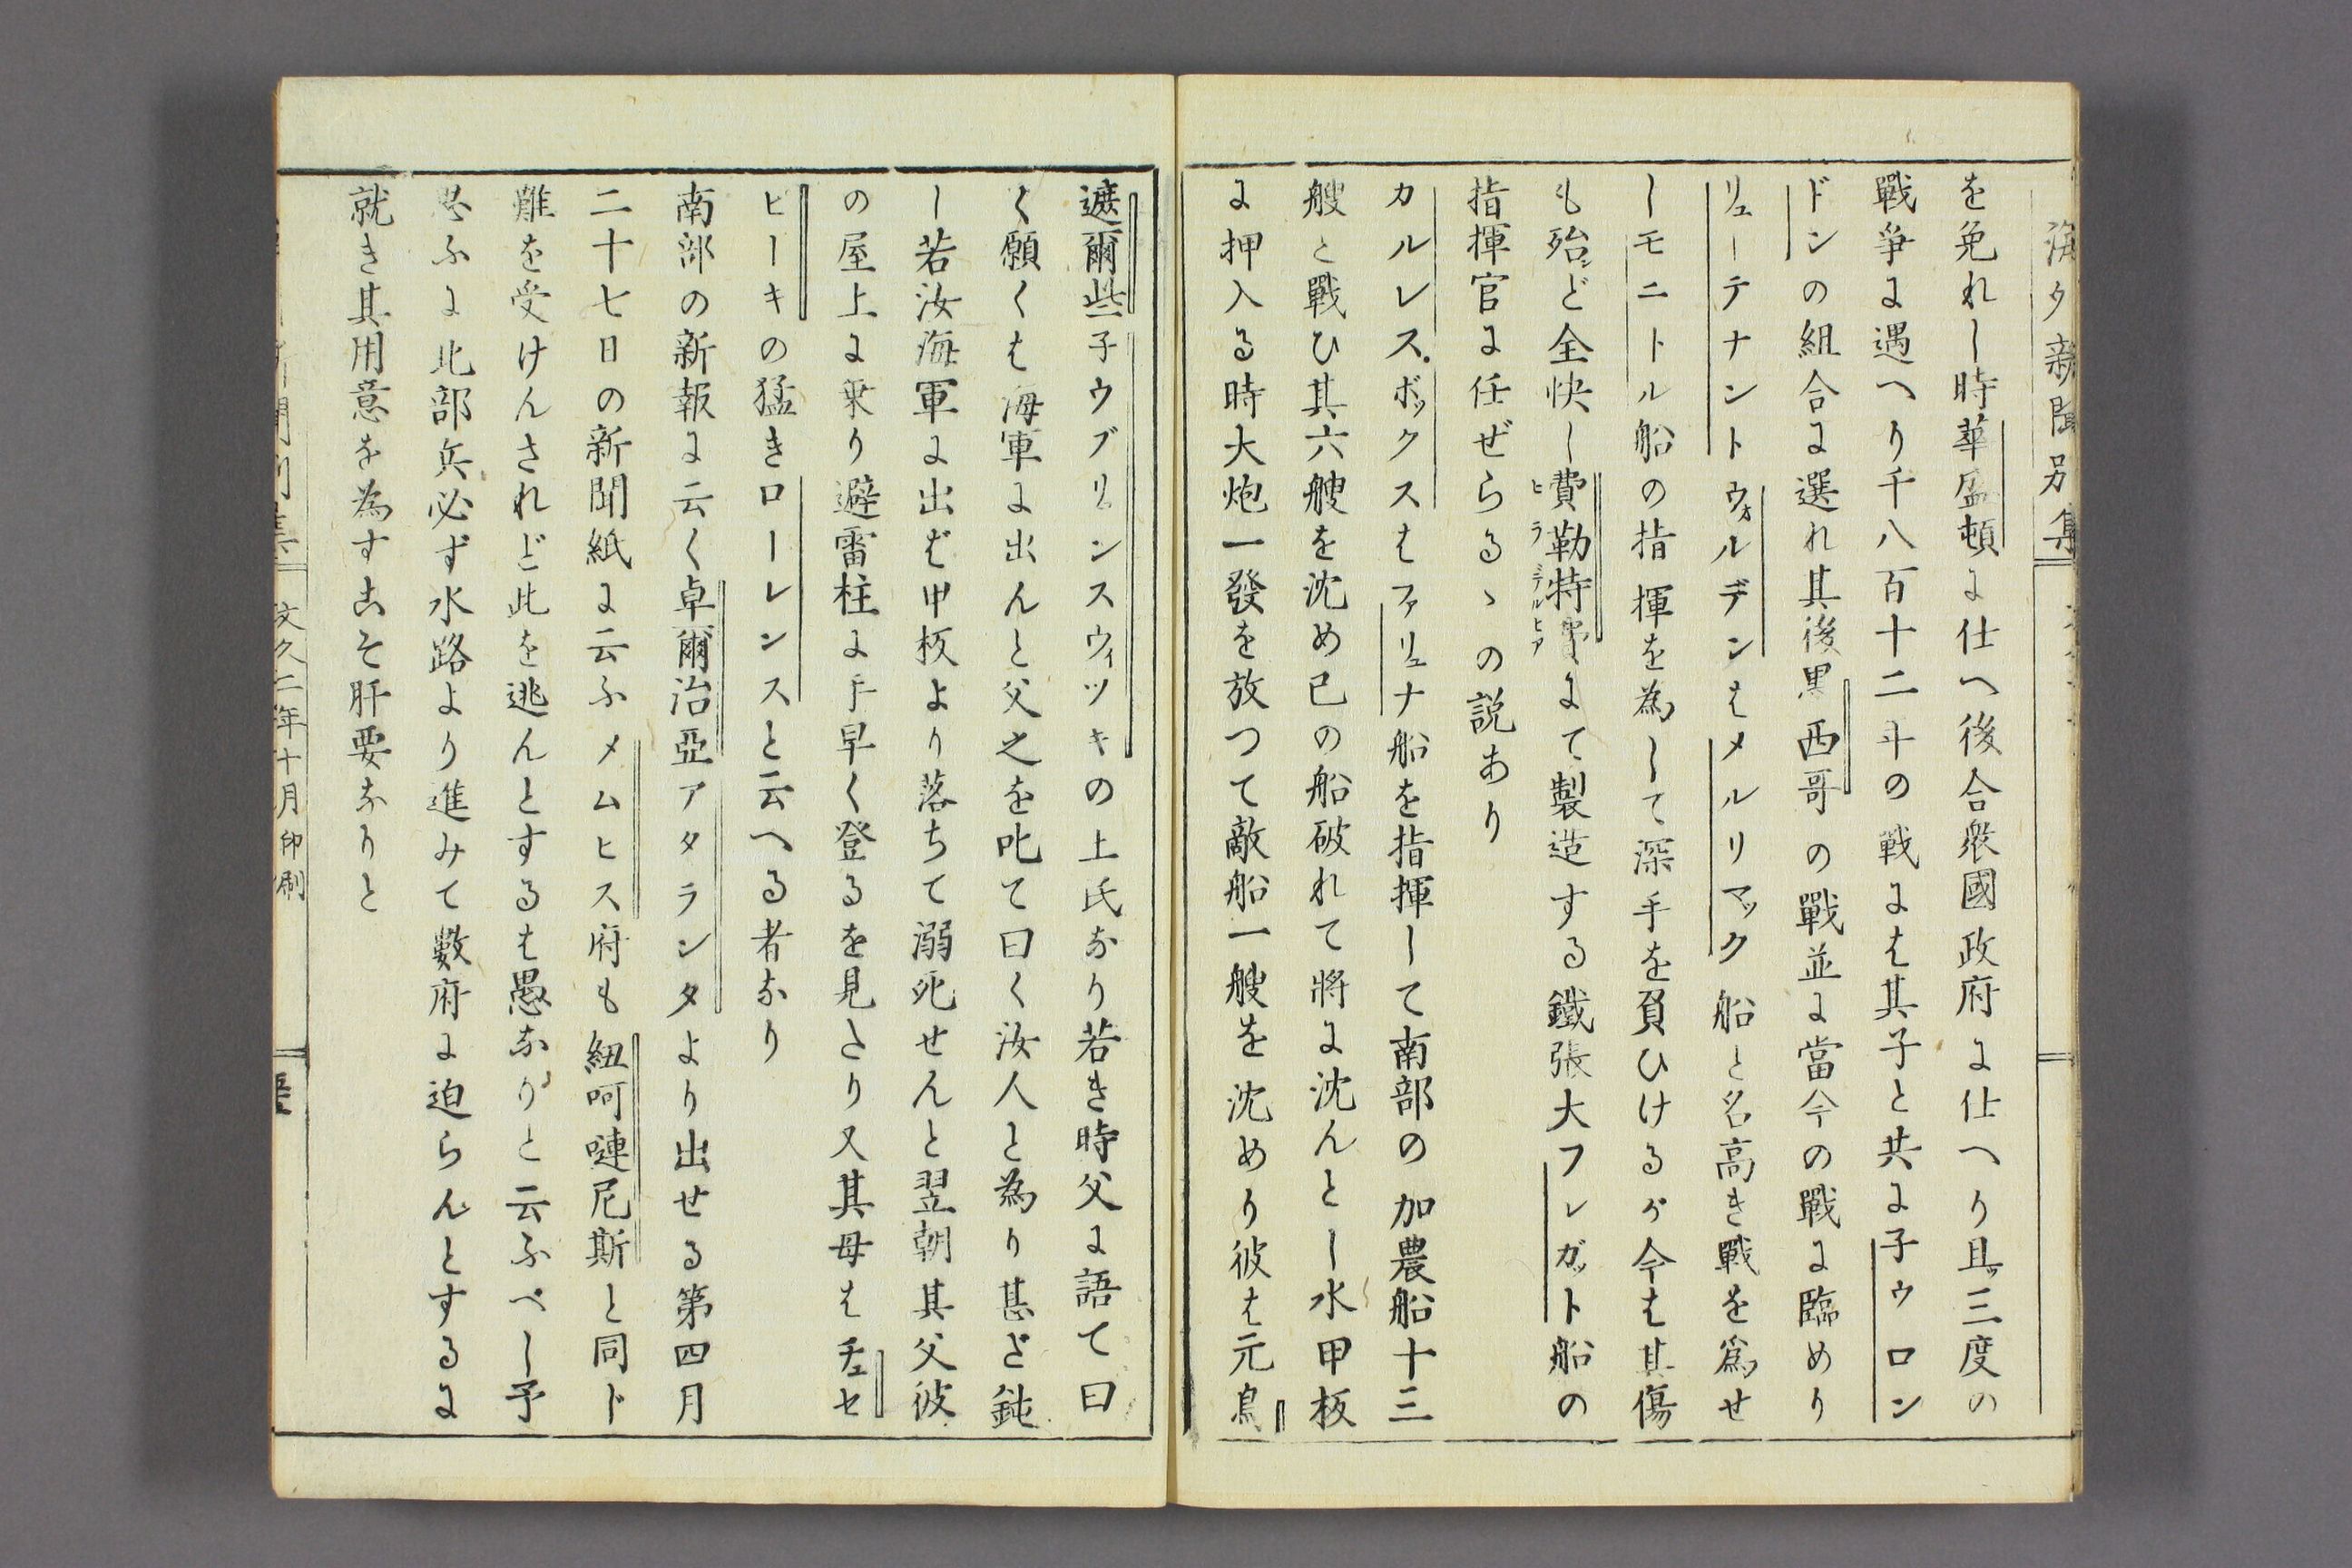 海外新聞別集
を免れし時華盛頓に仕へ後合衆國政府に仕へり且ッ三度の
戰爭に遇へり千八百十二年の戰には其子と共に子ウロン
ドンの組合に選れ其後黒西哥の戰並に當今の戰に臨めり
リューテナントウォルデンはメルリマック船と名高き戰を爲せ
しモニトル船の指揮を為して深手を負ひけるが今は其傷
も殆ンど全快し費勒特費ヒラデルヒアにて製造する鐵張大フレガット船の
指揮官に任ぜらるゝの説あり
カルレス.ボックスはファリュナ船を指揮して南部の加農船十三
艘と戰ひ其六艘を沈め已の船破れて將に沈んとし水甲板
に押入る時大炮一發を放つて敵船一艘を沈めり彼は元鳥
遮爾些子ウブリュンスウィツキの上氏なり若き時父に語て曰
く願くは海軍に出んと父之を叱て曰く汝人と為り甚ざ鈍
し若汝海軍に出ば甲板より落ちて溺死せんと翌朝其父彼
の屋上に乗り避雷柱に手早く登るを見たり又其母はチェセ
ピーキの猛きローレンスと云へる者なり
南部の新報に云く卓爾治亞アタランタより出せる第四月
二十七日の新聞紙に云ふメムヒス府も紐呵嗹尼斯と同ド
難を受けんされど此を逃んとするは愚なりと云ふべし予
思ふに北部兵必ず水路より進みて數府に迫らんとするに
就き其用意を為すこそ肝要なりと
文久二年十月印刷